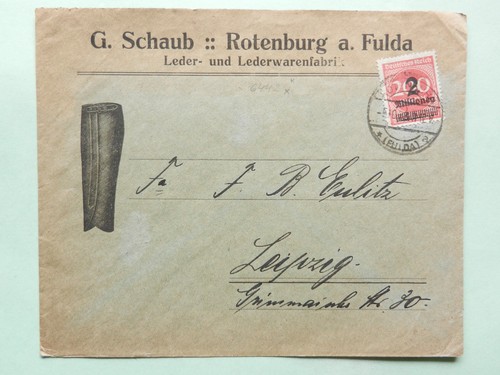 G. Schaub :: Rotenburg a. Fulda
Leder- und Lederwarenfabrik
Deutsches Reich
200
2
Millionen
(FULDA)
Fa F. B. Eulitz
Leipzig.
Grimmaische Str. 30.